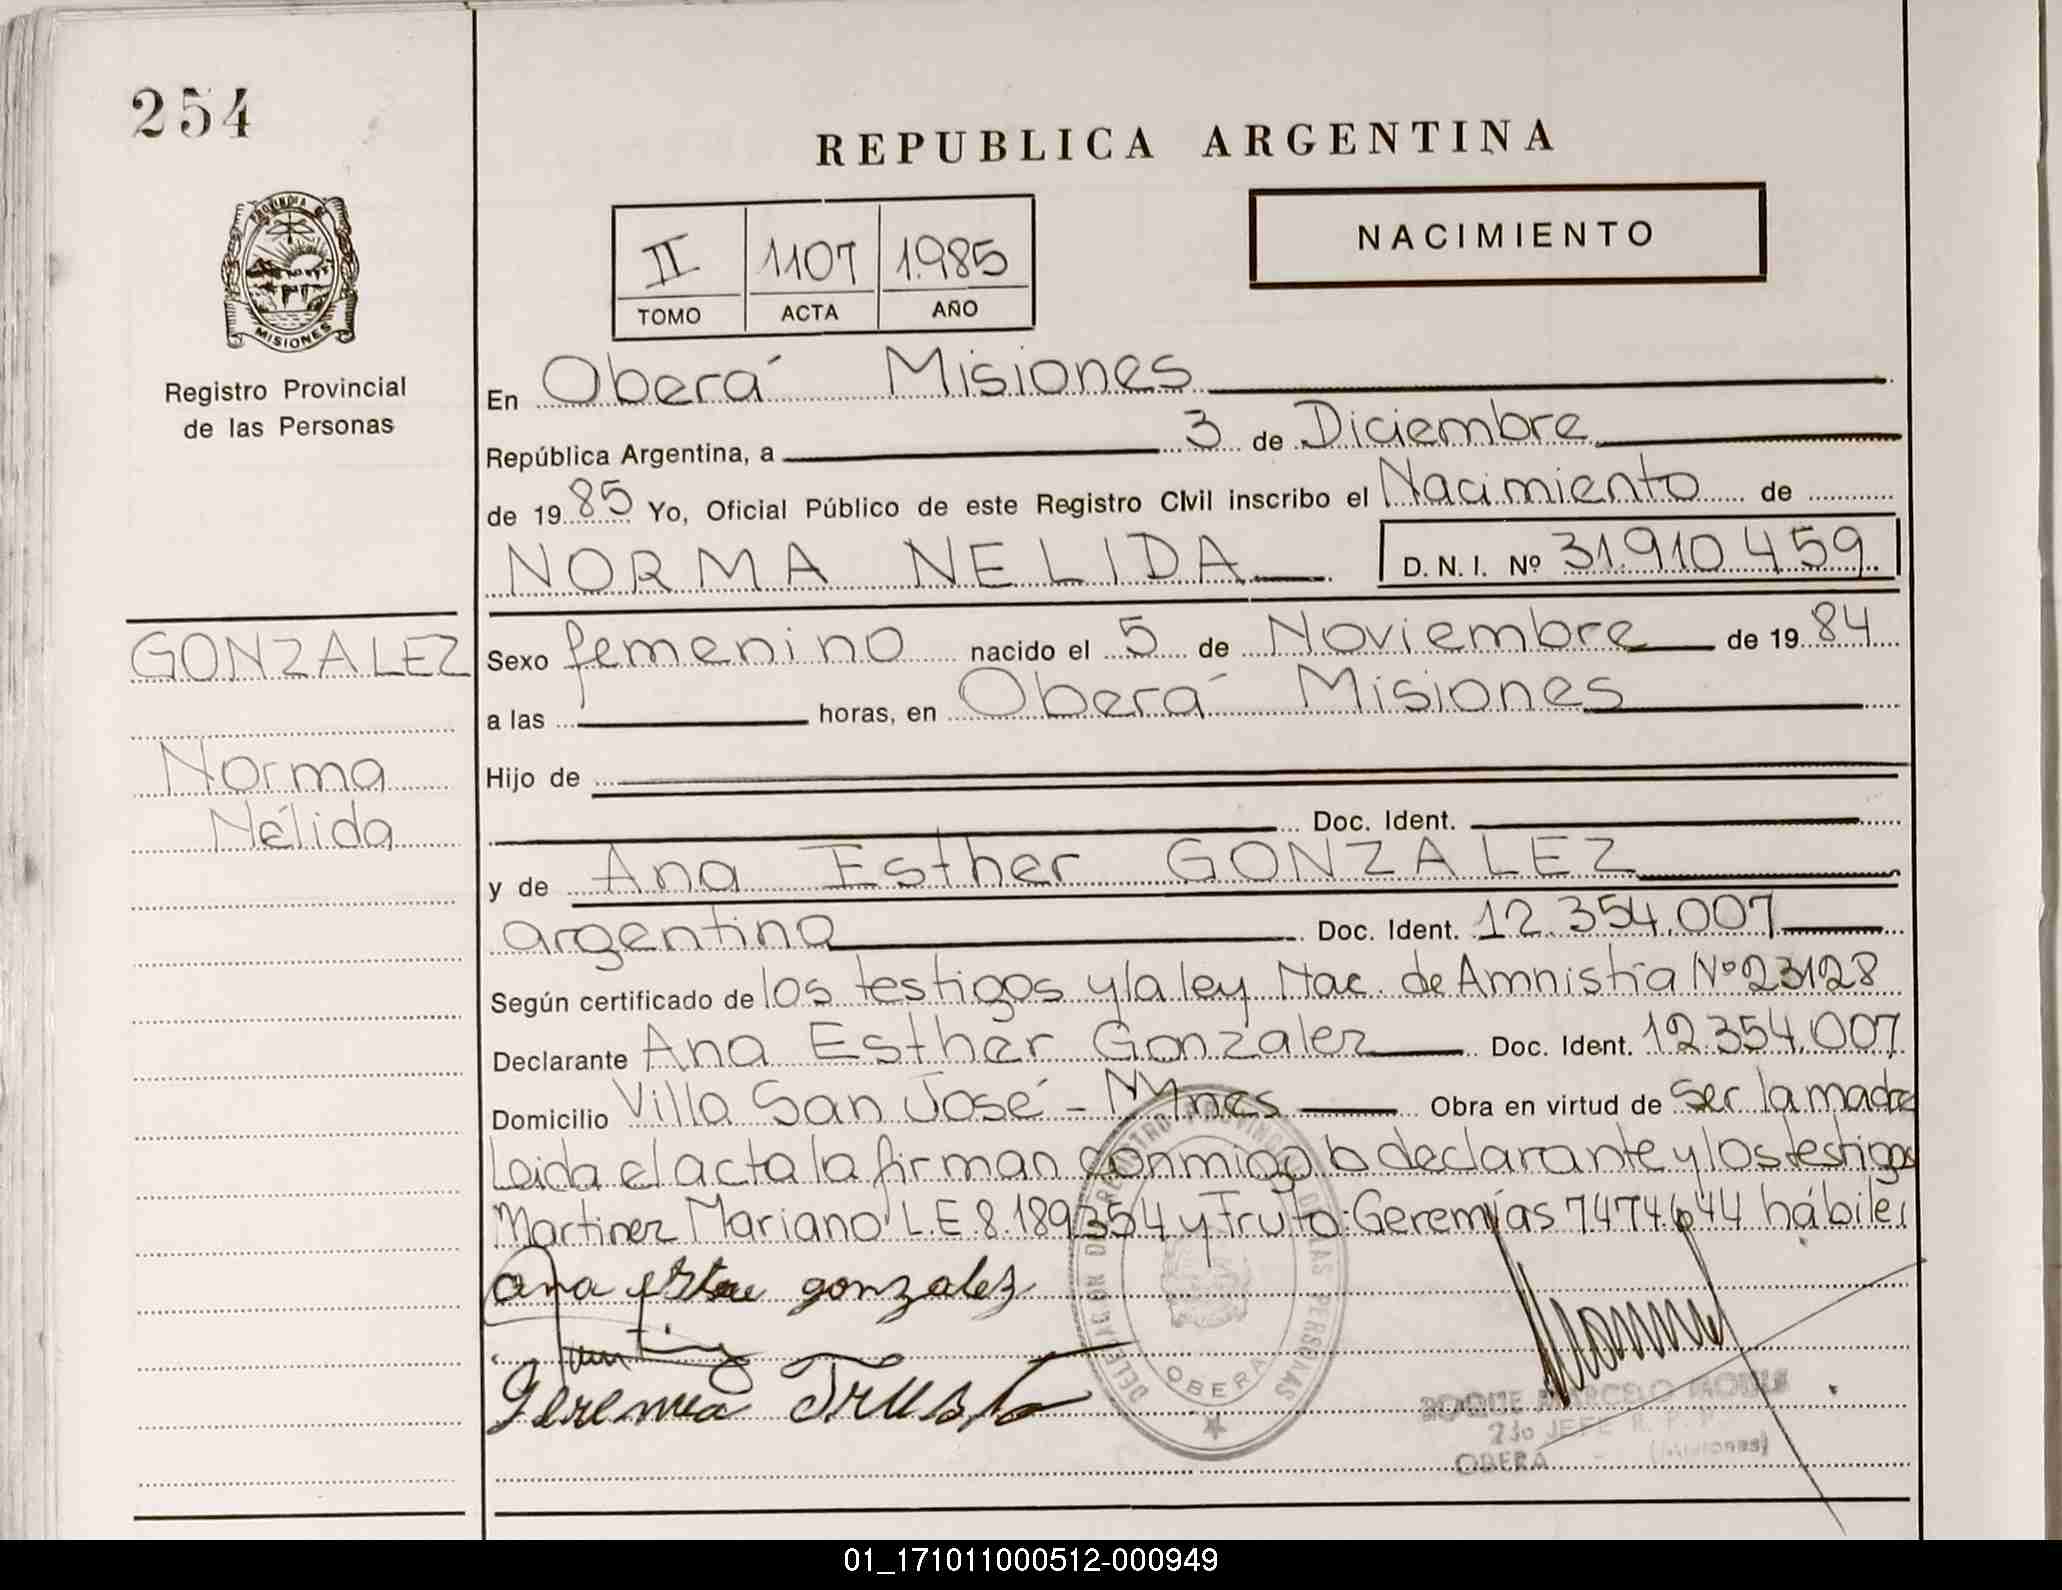 254
REPUBLICA ARGENTINA
PROVINCIA DE
MISIONES
II 1107 1.985
TOMO ACTA AÑO
NACIMIENTO
Registro Provincial
de las Personas
En Oberá Misiones
República Argentina, a 3 de Diciembre
de 1985 Yo, Oficial Público de este Registro Civil inscribo el Nacimiento de
NORMA NELIDA D.N.I. Nº 31.910.459
GONZALEZ
Norma
Nélida
Sexo femenino nacido el 5 de Noviembre de 1984
a las horas, en Oberá Misiones
Hijo de
Doc. Ident.
y de Ana Esther GONZALEZ
argentina Doc. Ident. 12.354.007
Según certificado de los testigos y la ley Nac. de Amnistía Nº 23128
Declarante Ana Esther Gonzalez Doc. Ident. 12.354.007
Domicilio Villa San José - Mnes Obra en virtud de ser la madre
Leida el acta la firman conmigo la declarante y los testigos
Martinez Mariano L.E 8.189354 y Truto Geremías 7474644 hábiles
ana gonzalez
DELEGACION DEL REGISTRO PROVINCIAL DE LAS PERSONAS
OBERA
ROQUE MARCELO
2do JEFE R. P. P.
OBERA (Misiones)
01_171011000512-000949